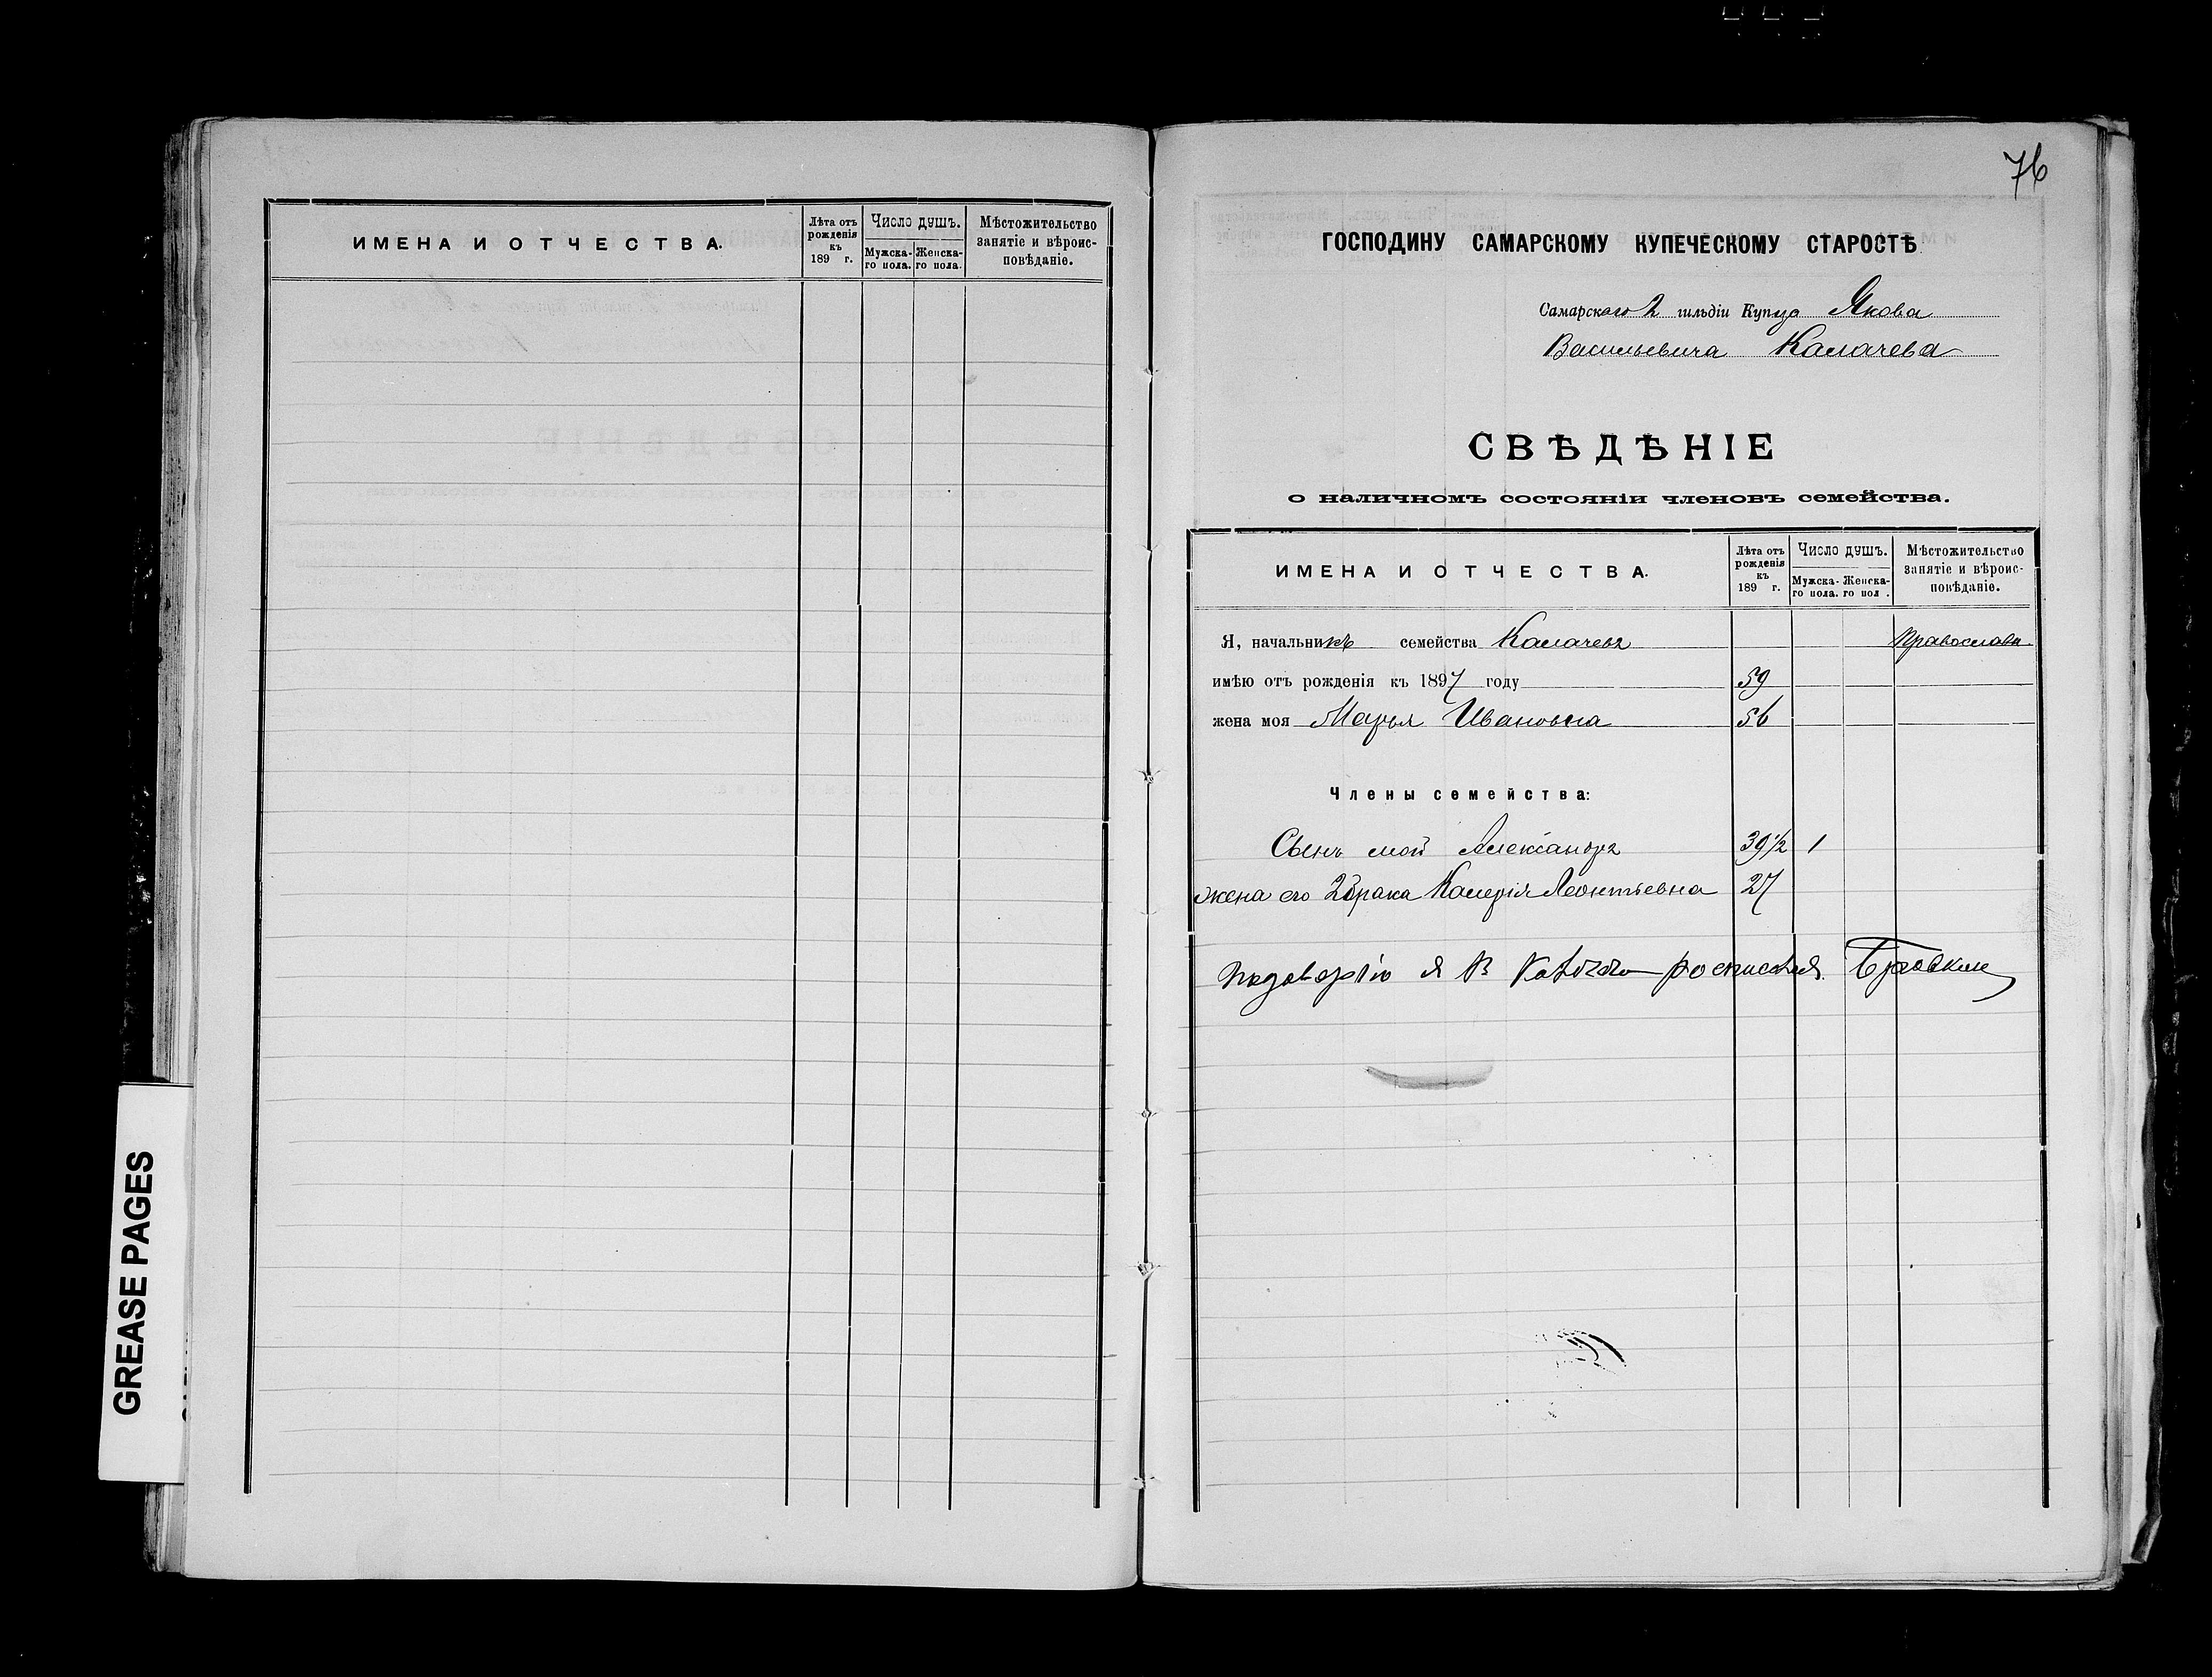 ИМЕНА И ОТЧЕСТВА.
Лѣта отъ рожденія къ 189 г.
Число душъ.
Мужска-го пола.
Женска-го пола.
Мѣстожительство занятіе и вѣроис-повѣданіе.
76
ГОСПОДИНУ САМАРСКОМУ КУПЕЧЕСКОМУ СТАРОСТѢ
Самарскаго 2 гильдіи Купца Якова
Васильевича Калачева
СВѢДѢНІЕ
о наличномъ состояніи членовъ семейства.
ИМЕНА И ОТЧЕСТВА.
Лѣта отъ рожденія къ 189 г.
Число душъ.
Мужска-го пола.
Женска-го пол .
Мѣстожительство занятіе и вѣроис-повѣданіе.
Я, начальникъ семейства Калачевъ Православн.
имѣю отъ рожденія къ 1897 году 59
жена моя Марья Ивановна 56
Члены семейства:
Сынъ мой Александръ 39½ 1
жена его 2 брака Калерія Леонтьевна 27
я В
GREASE PAGES